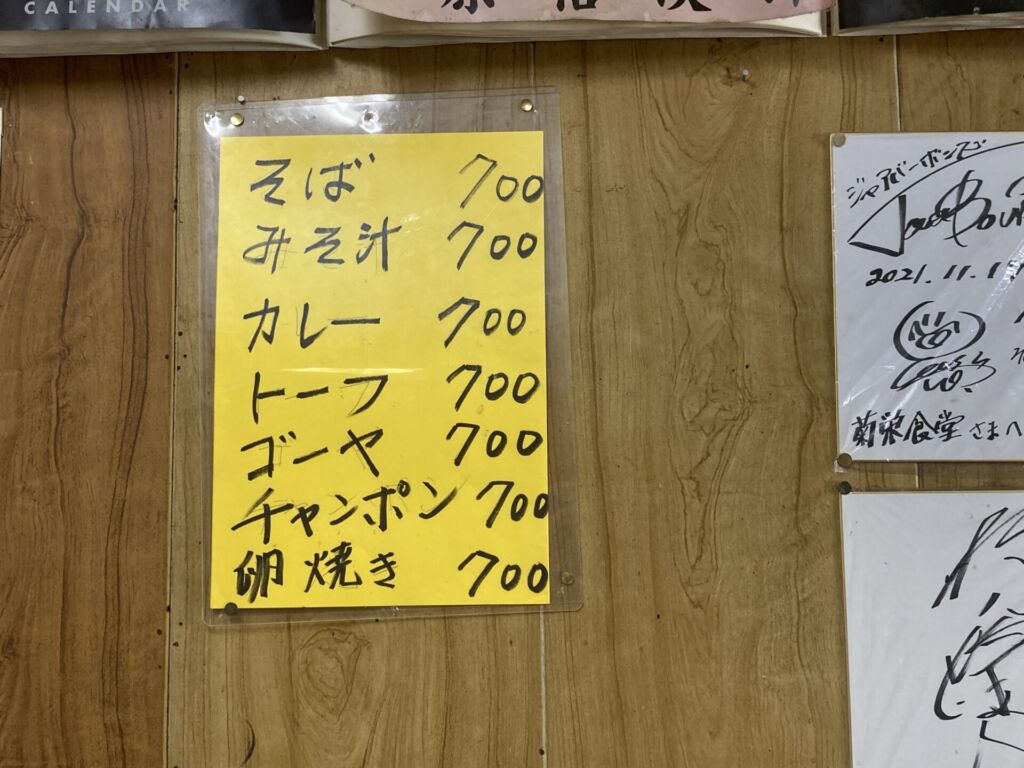 CALENDAR
そば 700
みそ汁 700
カレー 700
トーフ 700
ゴーヤ 700
チャンポン 700
卵焼き 700
2021.11.1
菊栄食堂さまへ